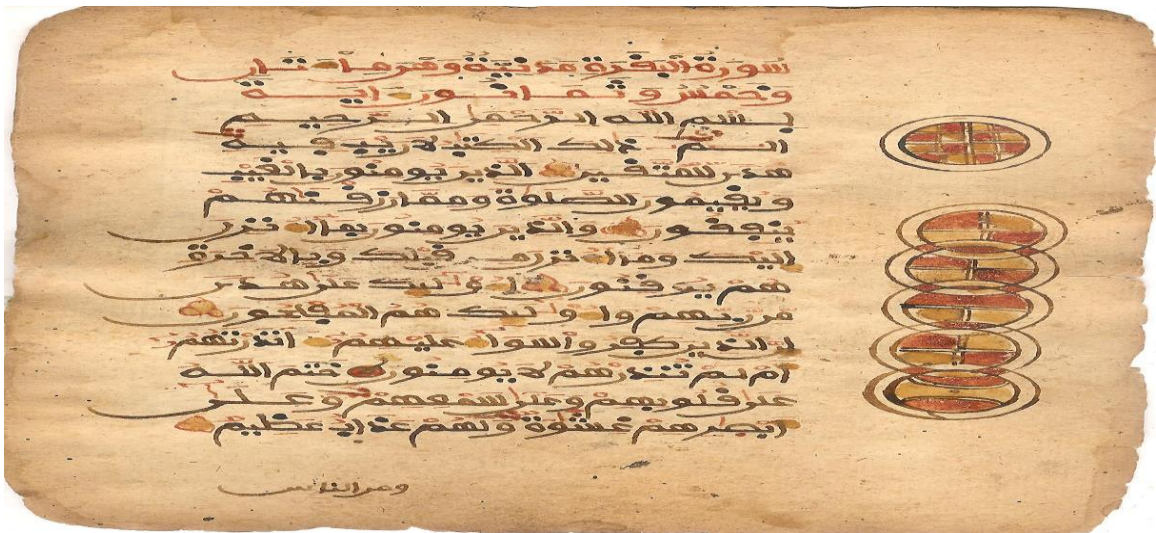 سورة البقرة مدنية وهى ماتان
وخمس وثمانون اية
بسم الله الرحمن الرحيم
الم ذلك الكتب لا ريب فيه
هدى للمتقين الذين يومنون بالغيب
ويقيمون الصلوة ومما رزقنهم
ينفقون والذين يومنون بما انزل
اليك وما انزل من قبلك وبالاخرة
هم يوقنون اوليك على هدى
من ربهم واوليك هم المفلحون
ان الذين كفروا سوا عليهم انذرتهم
ام لم تنذرهم لا يومنون ختم الله
على قلوبهم وعلى سمعهم وعلى
ابصرهم غشوة ولهم عذاب عظيم
ومن الناس